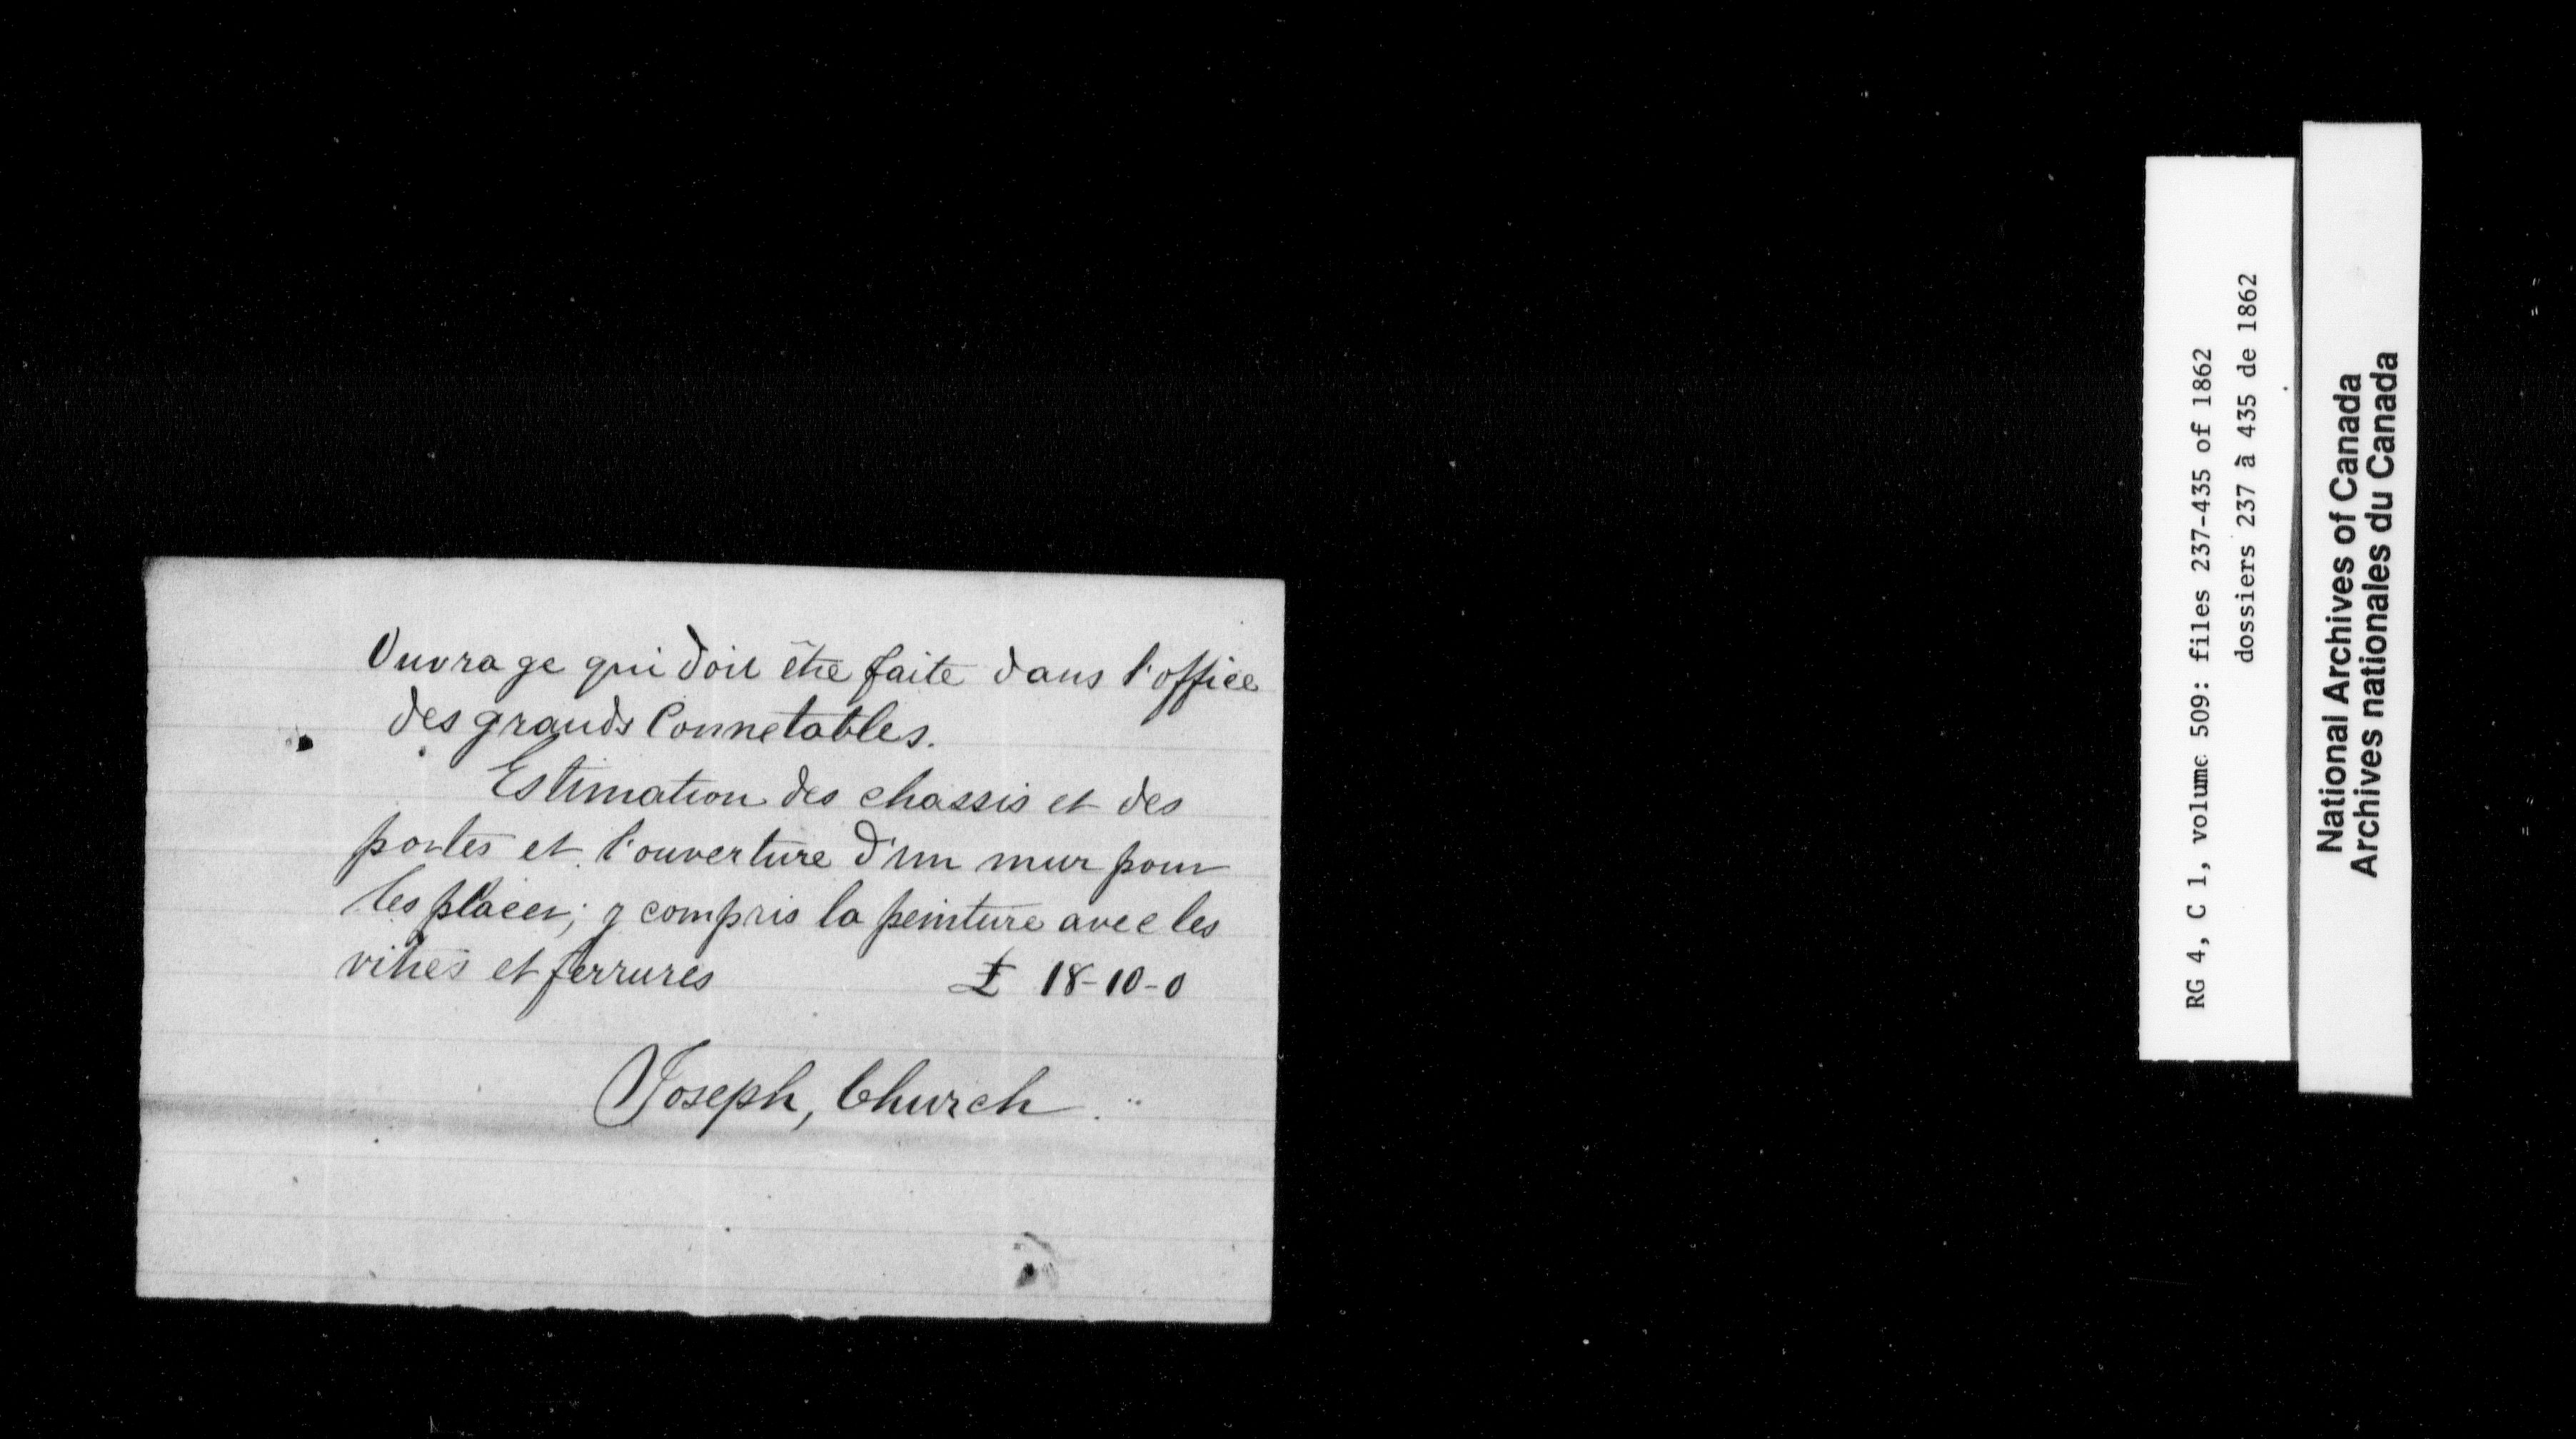 Ouvrage qui doit être faite dans l'office
des grands Connetables.
Estimation des chassis et des
portes et l'ouverture d'un mur pour
les placer; y compris la peinture avec les
vitres et ferrures £ 18-10-0
Joseph, Church
RG 4, C 1, volume 509: files 237-435 of 1862
dossiers 237 à 435 de 1862
National Archives of Canada
Archives nationales du Canada